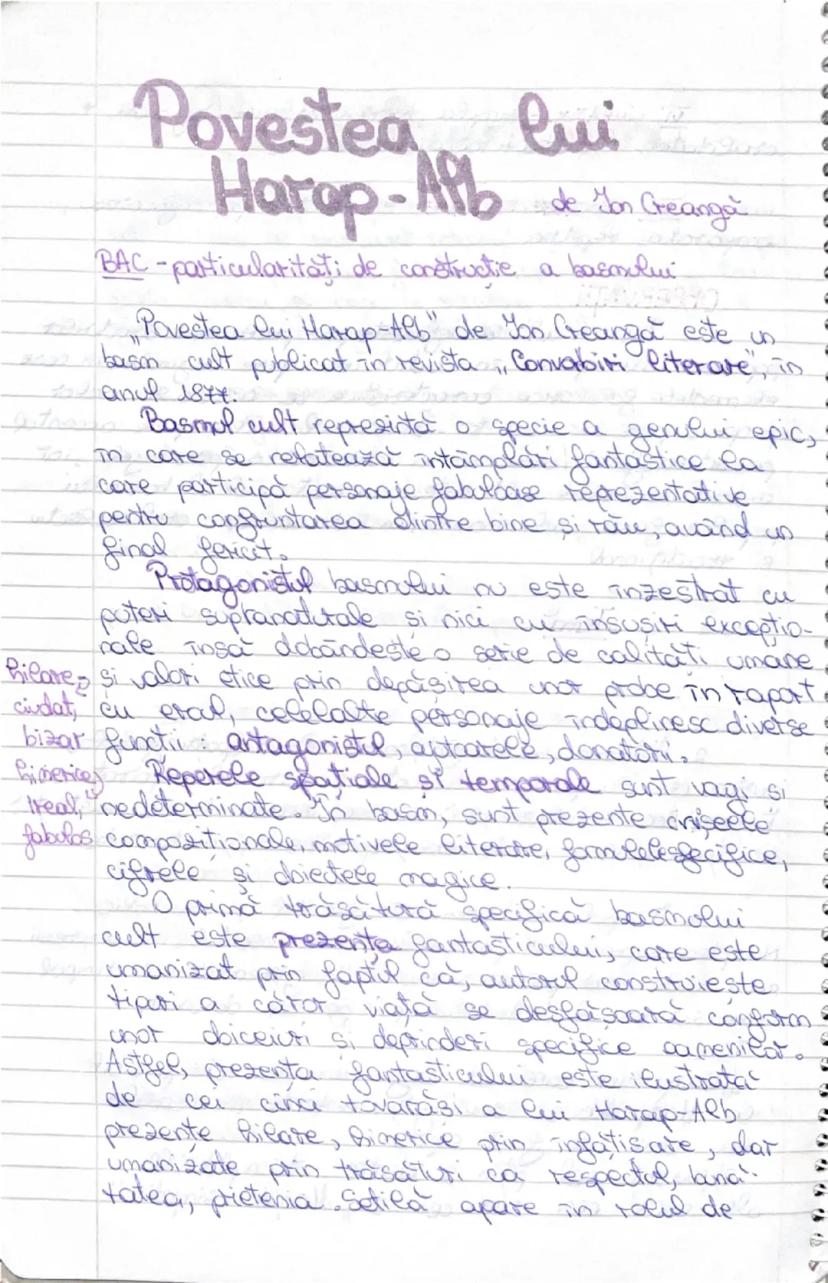 Povestea lui
Harap-Alb de Ion Creangă
BAC - particularități de construcție a basmului
„Povestea lui Harap-Alb” de Ion Creangă este un
basm cult publicat în revista „Convorbiri literare”, în
anul 1877.
Basmul cult reprezintă o specie a genului epic,
în care se relatează întâmplări fantastice la
care participă personaje fabuloase reprezentative
pentru confruntarea dintre bine și rău, având un
final fericit.
Protagonistul basmului nu este înzestrat cu
puteri supranaturale și nici cu însușiri excepțio-
nale însă dobândește o serie de calități umane
și valori etice prin depășirea unor probe în raport
cu eroul, celelalte personaje îndeplinesc diverse
funcții: antagonistul, ajutoarele, donatorii.
hilare=
ciudat,
bizar
himerice=
ireal,
fabulos
Reperele spațiale și temporale sunt vagi și
nedeterminate. În basm, sunt prezente clișeele
compoziționale, motivele literare, formulele specifice,
cifrele și obiectele magice.
O primă trăsătură specifică basmului
cult este prezența fantasticului, care este
umanizat prin faptul că, autorul construiește
tipuri a căror viață se desfășoară conform
unor obiceiuri și deprinderi specifice oamenilor.
Astfel, prezența fantasticului este ilustrată
de cei cinci tovarăși a lui Harap-Alb
prezențe hilare, himerice prin înfățișare, dar
umanizate prin trăsături ca respectul, bună-
tatea, prietenia. Setilă apare în rolul de